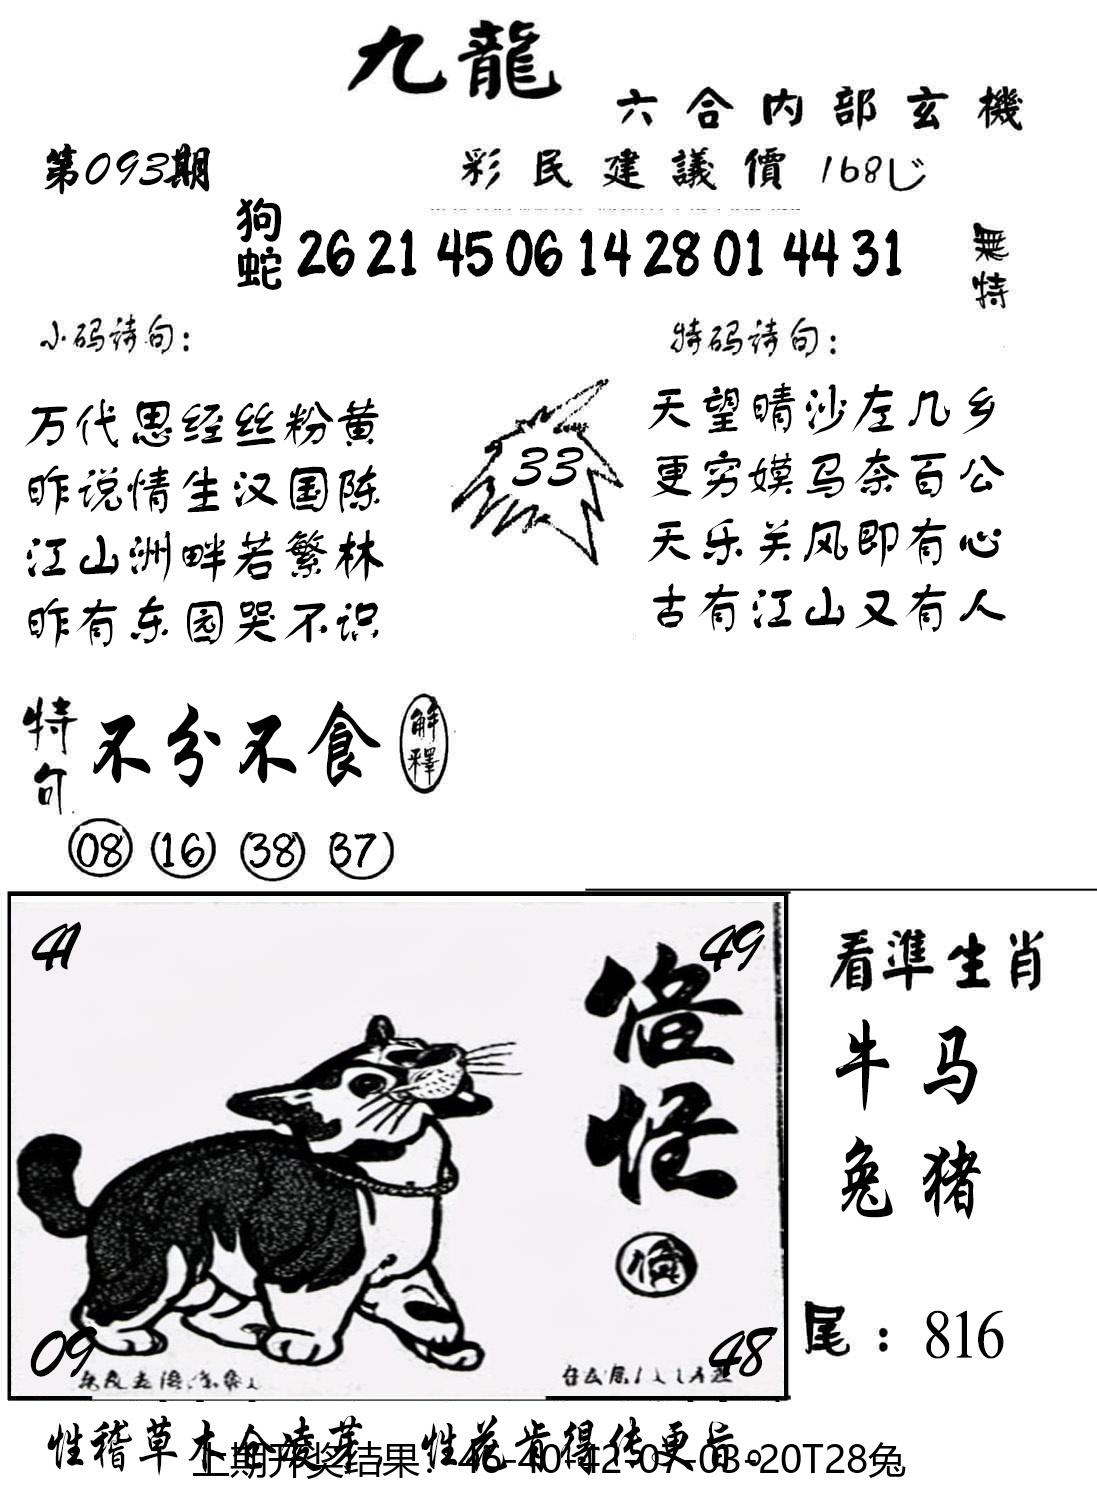 九龍
六合内部玄機
第093期
彩民建議價 168
狗蛇 26 21 45 06 14 28 01 44 31
無特
小码诗句：
特码诗句：
万代思经丝粉黄
昨说情生汉国陈
江山洲畔若繁林
昨有东园哭不识
33
天望晴沙左几乡
更穷嫫马奈百公
天乐关风即有心
古有江山又有人
特句 不分不食 解釋
08 16 38 37
41
49
看準生肖
牛 马
兔 猪
09
48
尾：816
性稽草木 性花肯得传更旨。
上期开奖结果：46-40-42-07-03-20T28兔